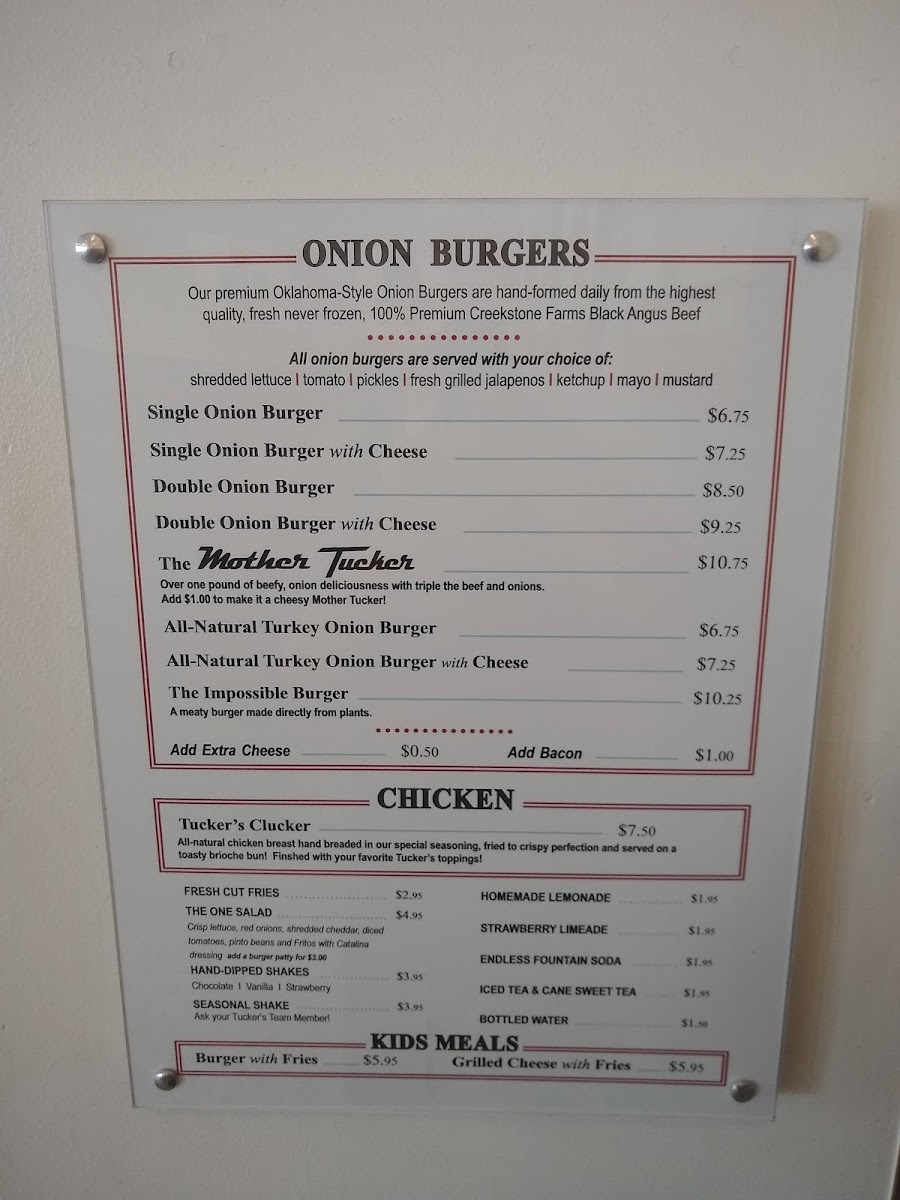 ONION BURGERS
Our premium Oklahoma-Style Onion Burgers are hand-formed daily from the highest
quality, fresh never frozen, 100% Premium Creekstone Farms Black Angus Beef
All onion burgers are served with your choice of:
shredded lettuce | tomato | pickles | fresh grilled jalapenos | ketchup | mayo | mustard
Single Onion Burger $6.75
Single Onion Burger with Cheese $7.25
Double Onion Burger $8.50
Double Onion Burger with Cheese $9.25
The Mother Tucker $10.75
Over one pound of beefy, onion deliciousness with triple the beef and onions.
Add $1.00 to make it a cheesy Mother Tucker!
All-Natural Turkey Onion Burger $6.75
All-Natural Turkey Onion Burger with Cheese $7.25
The Impossible Burger $10.25
A meaty burger made directly from plants.
Add Extra Cheese $0.50 Add Bacon $1.00
CHICKEN
Tucker's Clucker $7.50
All-natural chicken breast hand breaded in our special seasoning, fried to crispy perfection and served on a
toasty brioche bun! Finshed with your favorite Tucker's toppings!
FRESH CUT FRIES $2.95
THE ONE SALAD $4.95
Crisp lettuce, red onions, shredded cheddar, diced
tomatoes, pinto beans and Fritos with Catalina
dressing add a burger patty for $3.00
HAND-DIPPED SHAKES $3.95
Chocolate | Vanilla | Strawberry
SEASONAL SHAKE $3.95
Ask your Tucker's Team Member!
HOMEMADE LEMONADE $1.95
STRAWBERRY LIMEADE $1.95
ENDLESS FOUNTAIN SODA $1.95
ICED TEA & CANE SWEET TEA $1.95
BOTTLED WATER $1.50
KIDS MEALS
Burger with Fries $5.95 Grilled Cheese with Fries $5.95